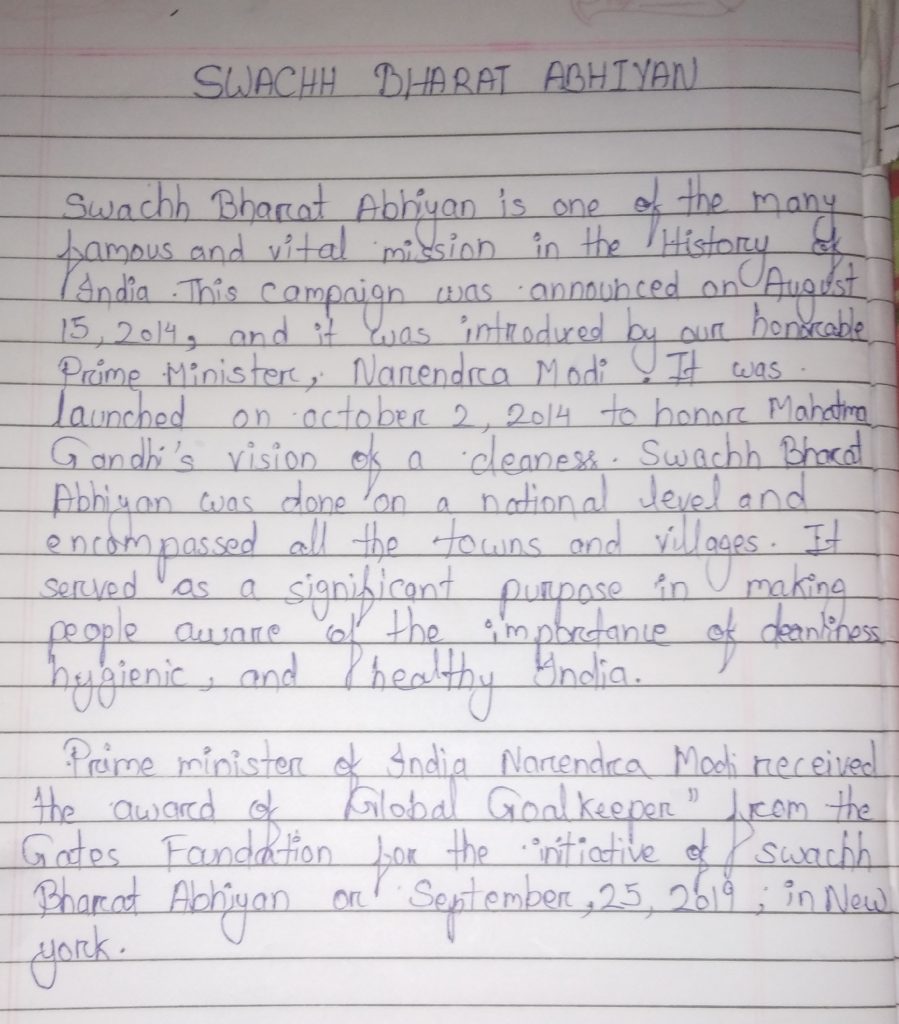 SWACHH BHARAT ABHIYAN
Swachh Bharat Abhiyan is one of the many
famous and vital mission in the History of
India. This campaign was announced on August
15, 2014, and it was introduced by our honorable
Prime Minister, Narendra Modi. It was
launched on october 2, 2014 to honor Mahatma
Gandhi's vision of a cleaness. Swachh Bharat
Abhiyan was done on a national level and
encompassed all the towns and villages. It
served as a significant purpose in making
people aware of the importance of cleanliness
hygienic, and healthy India.
Prime minister of India Narendra Modi received
the award of Global Goalkeeper" from the
Gates Foundation for the initiative of swachh
Bharat Abhiyan on September, 25, 2019, in New
york.